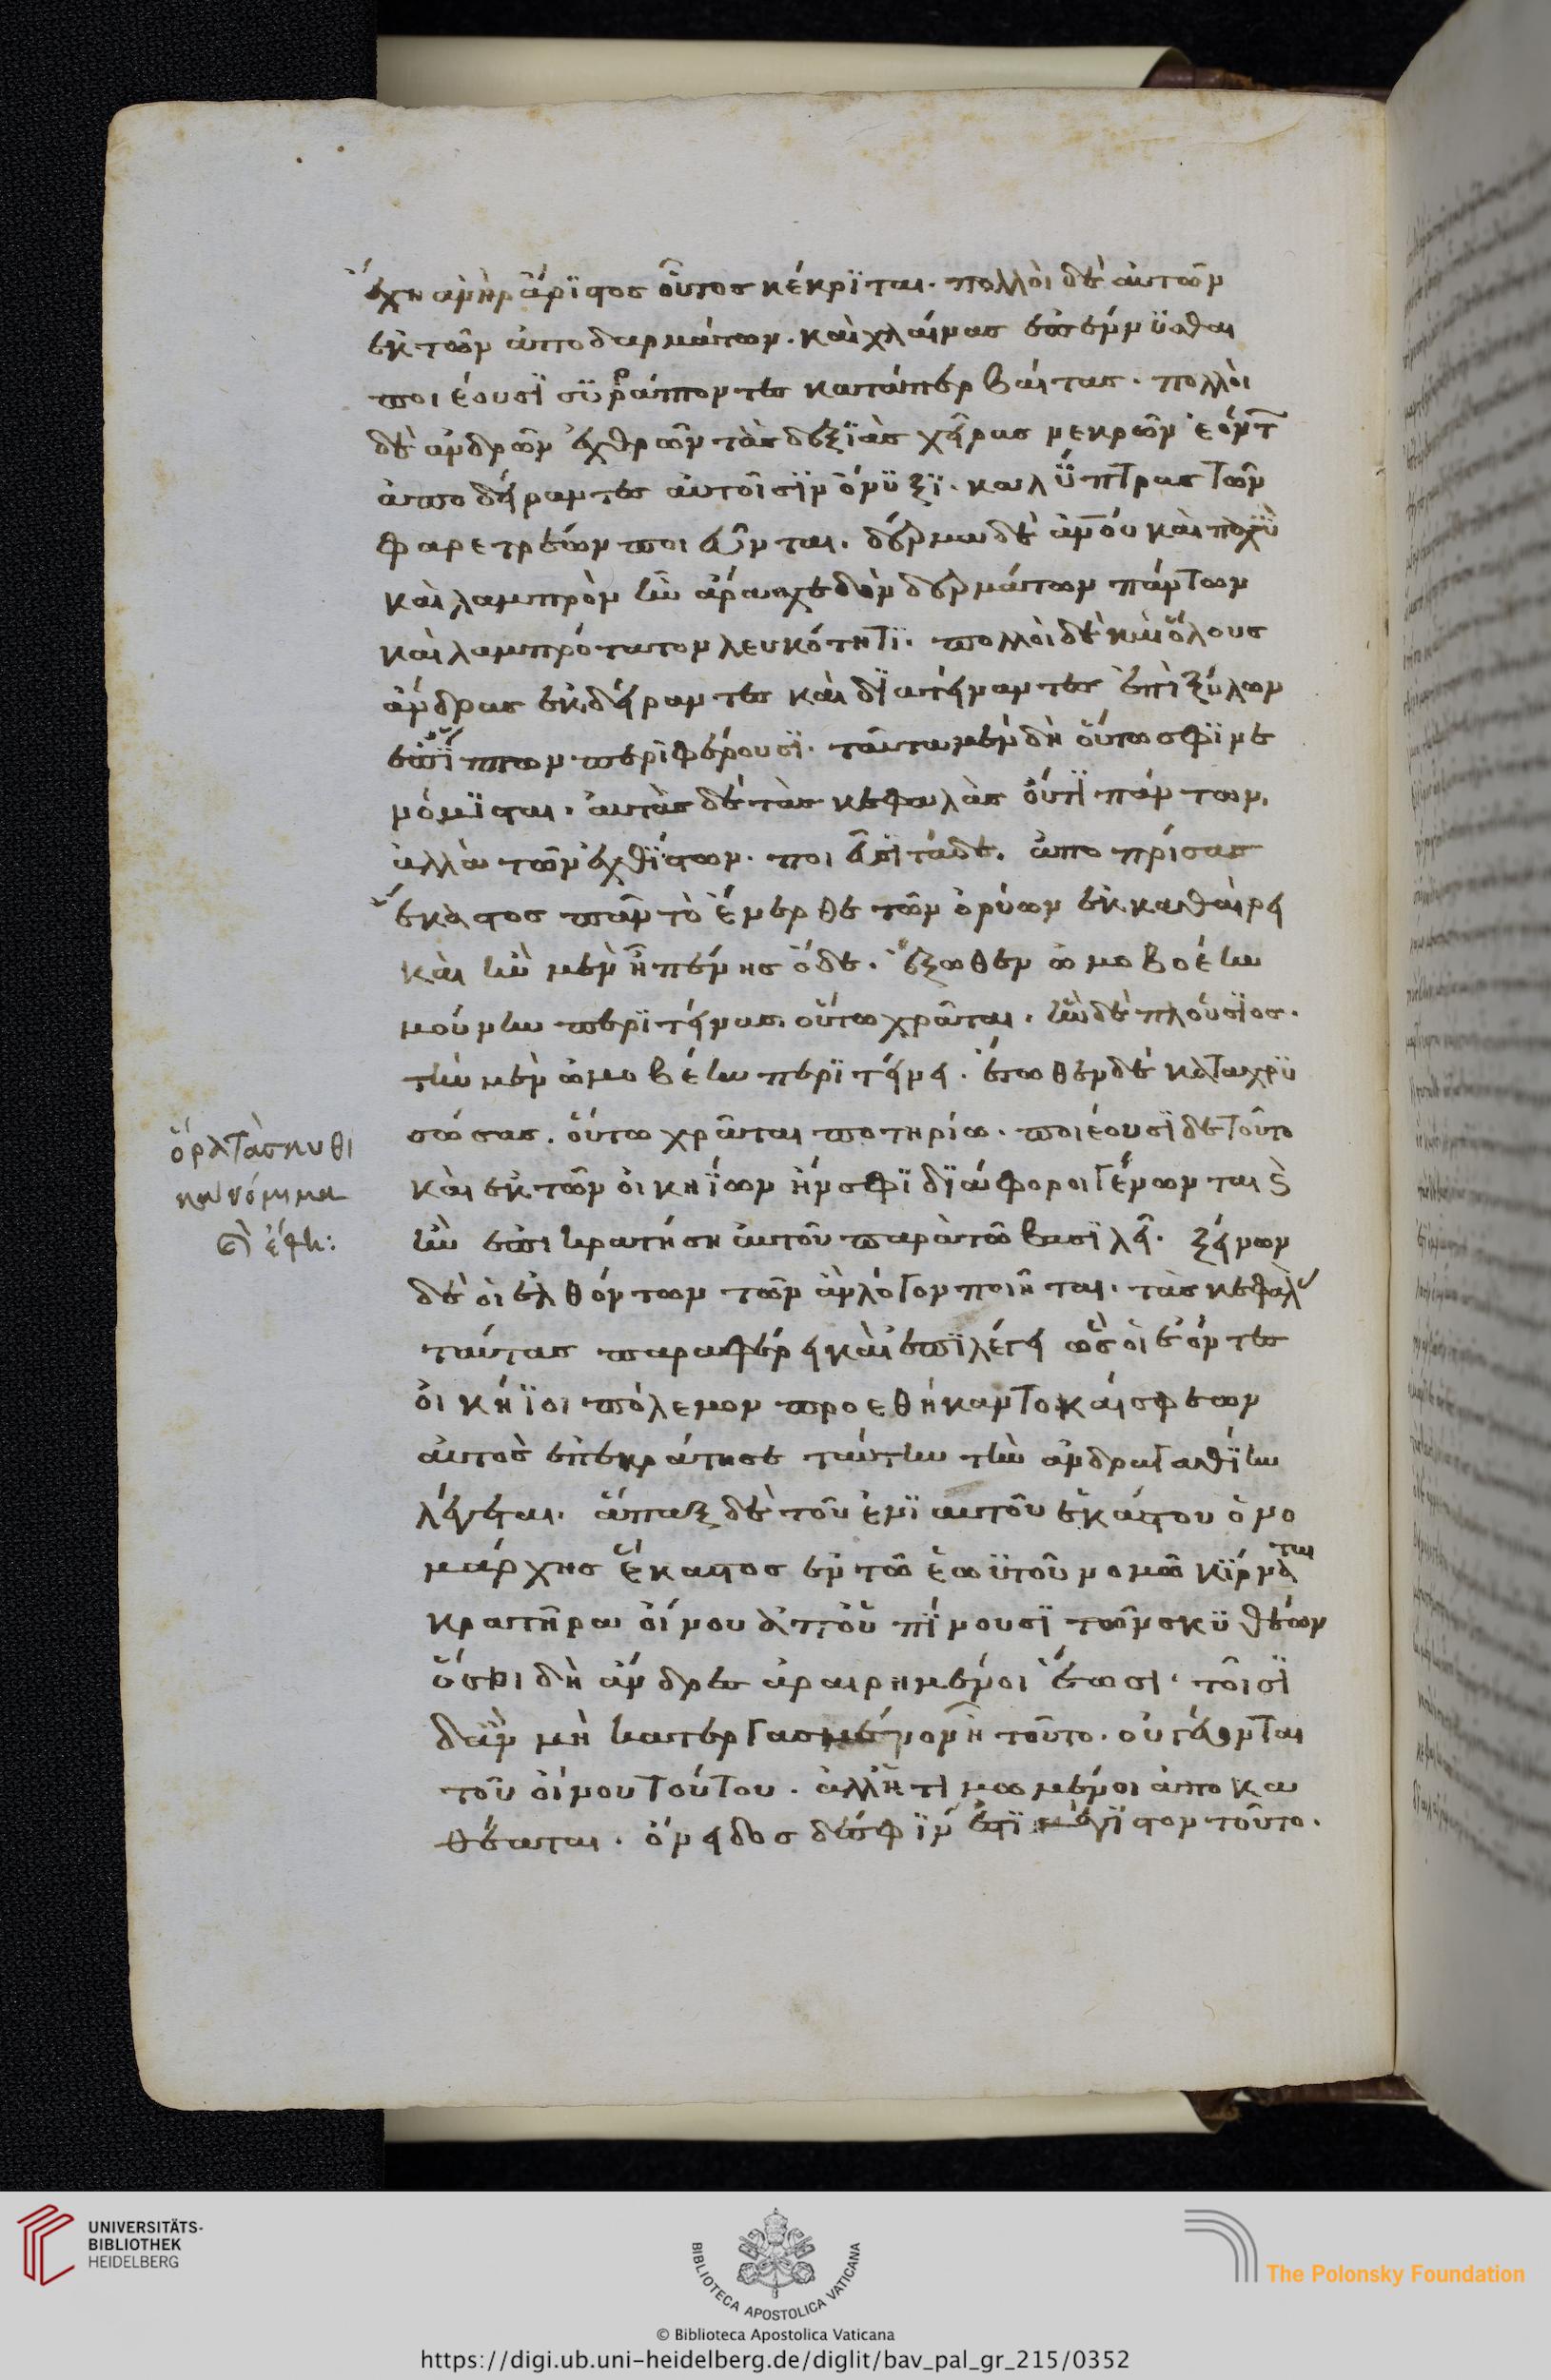 ἔχη ἀνὴρ ἄριστος οὗτος κέκριται. πολλοὶ δὲ αὐτῶν
ἐκ τῶν ἀποδαρμάτων. καὶ χλαίνας ἐπεννυσθαι
ποιέουσϊ συρράπτοντες κατάπερ βαίτας. πολλοὶ
δὲ ἀνδρῶν ἐχθρῶν τὰς δεξϊὰς χεῖρας νεκρῶν ἐόντ
ἀποδείραντες αὐτοῖσϊν ὄνϋξϊ. καλύπτρας τῶν
φαρετρέων ποιεῦνται. δέρμα δὲ ἀνου καὶ παχὺ
καὶ λαμπρὸν ἦν ἄρα σχεδὸν δερμάτων πάντων
καὶ λαμπρότατον λευκότητϊ. πολλοὶ δὲ καὶ ὅλους
ἄνδρας ἐκδείραντες καὶ δϊατείναντες ἐπὶ ξύλων
ἐπ' ἵππων περϊφέρουσϊ. ταῦτα μὲν δὴ οὕτω σφϊ νε
νόμϊσται. αὐτὰς δὲ τὰς κεφαλὰς οὔτϊ πάντων.
ἀλλὰ τῶν ἐχθίστων. ποιεῦσϊ τάδε. ἀποπρίσας
ἕκαστος πᾶν τὸ ἔνερθε τῶν ὀφρύων ἐκκαθαίρει
καὶ ἢν μὲν ἦ πένης ὅδε. ἔξωθεν ὠμοβοέην
μούνην περϊτείνας. οὕτω χρᾶται. ἢν δὲ πλούσϊος.
τὴν μὲν ὠμοβέην περϊτείνει. ἔσωθεν δὲ καταχρϋ
σώσας. οὕτω χρᾶται ποτηρίω. ποιέουσϊ δὲ τοῦτο
καὶ ἐκ τῶν οἰκηΐων ἤν σφϊ δϊάφοροι γένωνται καὶ
ἢν ἐπικρατήση αὐτοῦ παρὰ τῶ βασϊλεῖ. ξείνων
δὲ οἱ ἐλθόντων τῶν ἂν λόγον ποιῆται. τὰς κεφαλ
ταύτας παραφέρει καὶ ἐπϊλέγει ὥς οἱ ἐόντες
οἰκήϊοι πόλεμον προεθήκαντο καί σφεων
αὐτὸς ἐπεκράτησε ταύτην τὴν ἀνδραγαθΐην
λέγεται. ἅπαξ δὲ τοῦ ἐνϊαυτοῦ ἑκάστου ὁ νο
μάρχης ἕκαστος ἐν τῶ ἑωϋτοῦ νομῶ κϊρνᾶται
κρατῆρα οἴνου ἀπ' οὗ πίνουσϊ τῶν σκϋθέων
ὅσοι δὴ ἄνδρες ἀραιρημένοι ἔωσι. τοῖσϊ
δ' ἂν μὴ κατεργασμένον ἦ τοῦτο. οὐ γέονται
τοῦ οἴνου τούτου. ἀλλ' ἠτιμωμένοι ἀποκα
θέαται. ὄνειδος δέ σφϊν ἐστϊ μέγϊστον τοῦτο.
ὅρα τὰ σκυθι
κὰ νόμιμα
καὶ ἔθη:
UNIVERSITÄTS-
BIBLIOTHEK
HEIDELBERG
BIBLIOTECA APOSTOLICA VATICANA
The Polonsky Foundation
© Biblioteca Apostolica Vaticana
https://digi.ub.uni-heidelberg.de/diglit/bav_pal_gr_215/0352